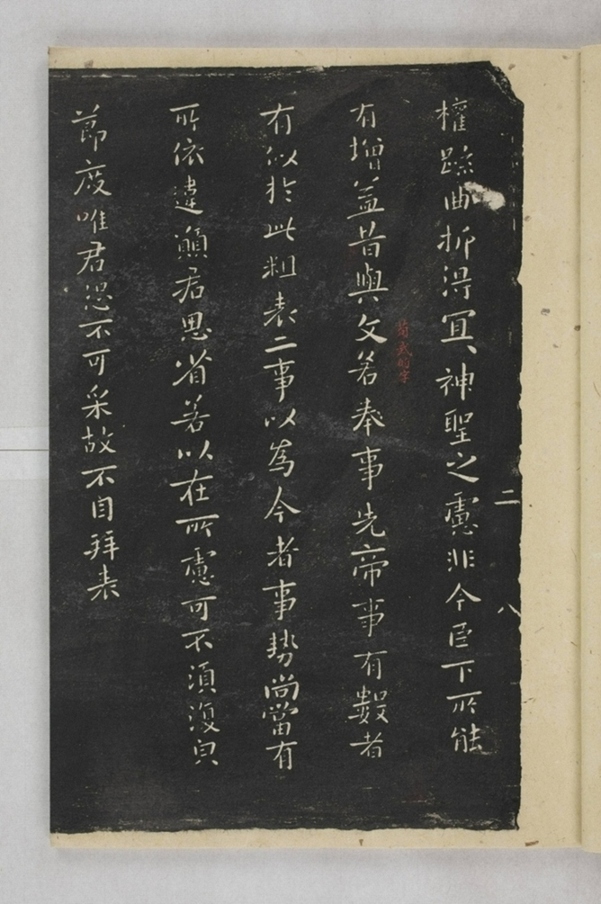 權踈曲折得冝、神聖之慮非今臣下所能
有增益昔與文若奉事先帝事有數者
有似於此粗表二事以為今者事勢尚當有
所依違願君思省若以在所慮可不須復皃
節度唯君恐不可采故不自拜表
二
八